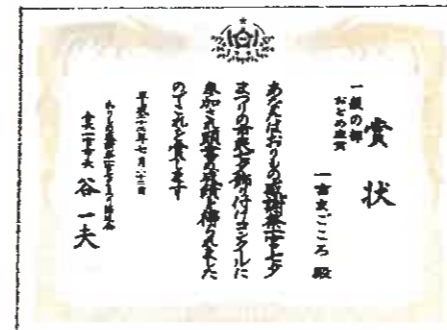 賞状
一般の部
おとめ座賞
一宮まごころ 殿
あなたはおりもの感謝祭一宮七夕
まつりの市民七夕飾り付けコンクールに
参加され頭書の成績を修められました
のでこれを賞します
平成二十六年七月二十三日
おりもの感謝祭一宮七夕まつり協進会
会長 一宮市長 谷 一夫